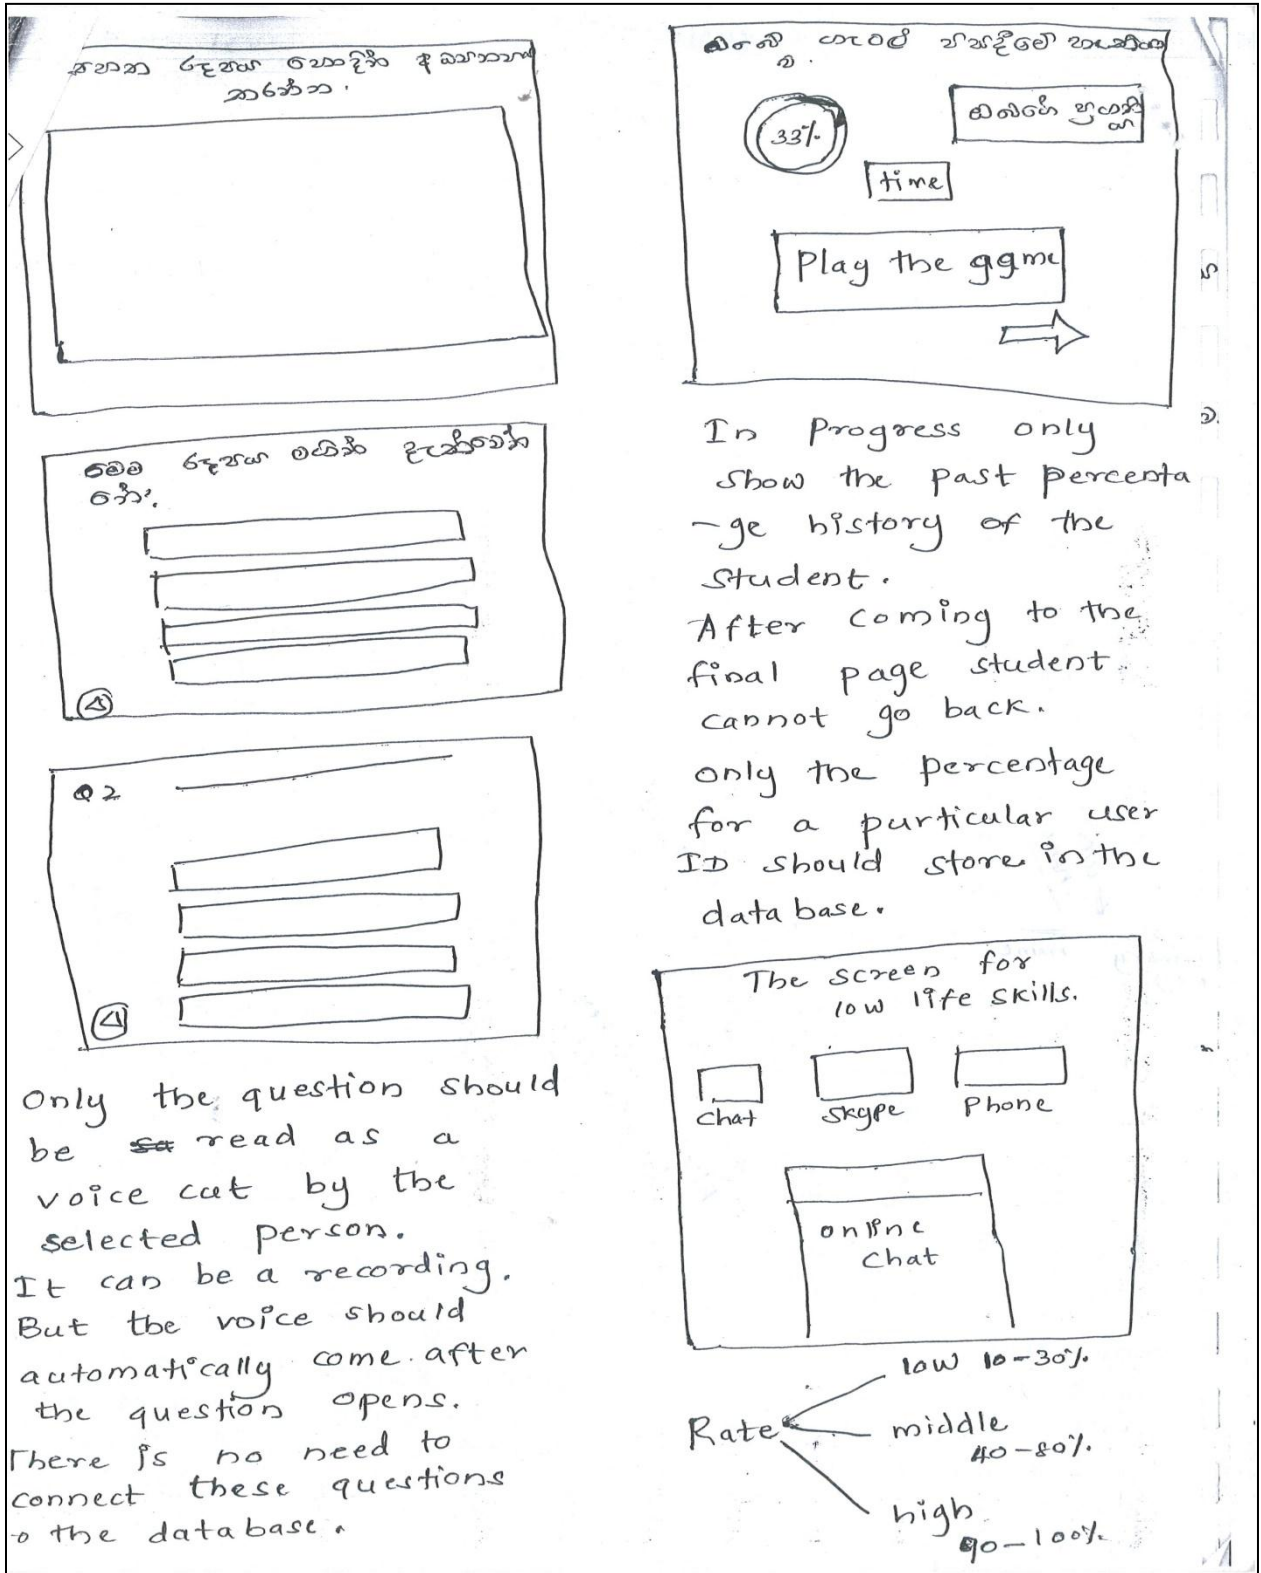 පහත රූපය හොදින්
කරන්න.
මෙම රූපය මගින් දැක්වෙන්
නේ.
Q 2
Only the question should
be read as a
voice cut by the
selected person.
It can be a recording.
But the voice should
automatically come after
the question opens.
There is no need to
connect these questions
the database.
ඔබේ ගැටළු විසදීමේ හැකියා
ව.
33%
ඔබගේ ප්‍රගතිය
time
Play the game
In Progress only
show the past percenta
-ge history of the
student.
After coming to the
final page student
cannot go back.
only the percentage
for a purticular user
ID should store in the
data base.
The screen for
low life skills.
chat
skype
Phone
online
chat
low 10-30%
Rate
middle
40-80%
high
90-100%